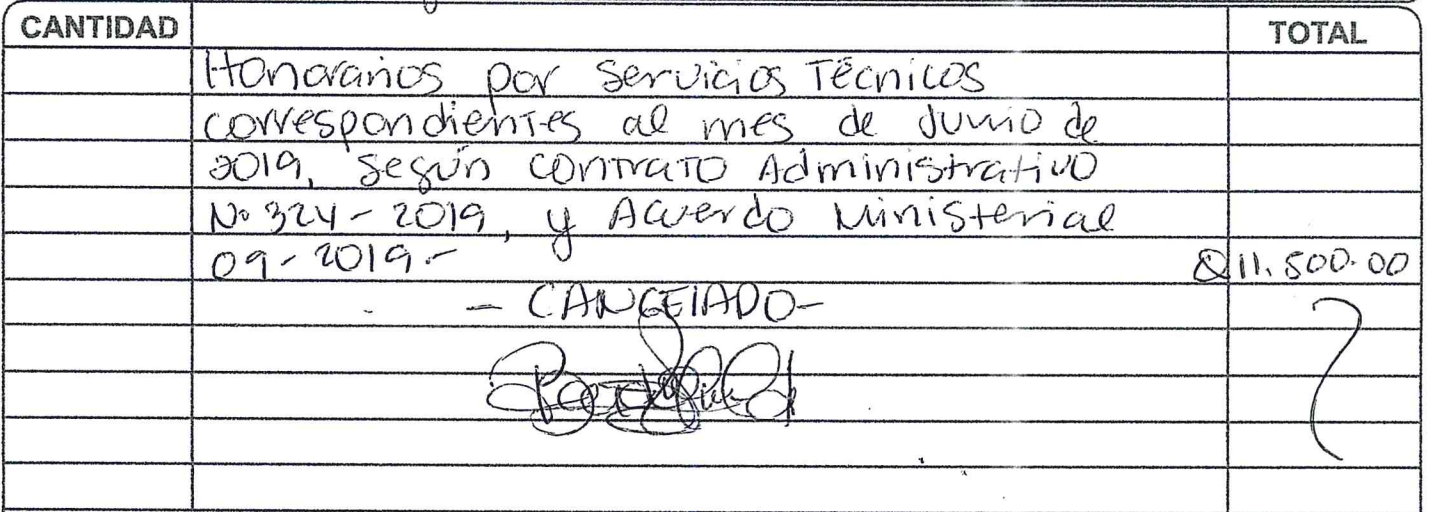 CANTIDAD TOTAL
Honorarios por Servicios Técnicos
correspondientes al mes de Junio de
2019, según contrato Administrativo
No 324-2019, y Acuerdo Ministerial
09-2019.- Q11,500.00
- CANCELADO-